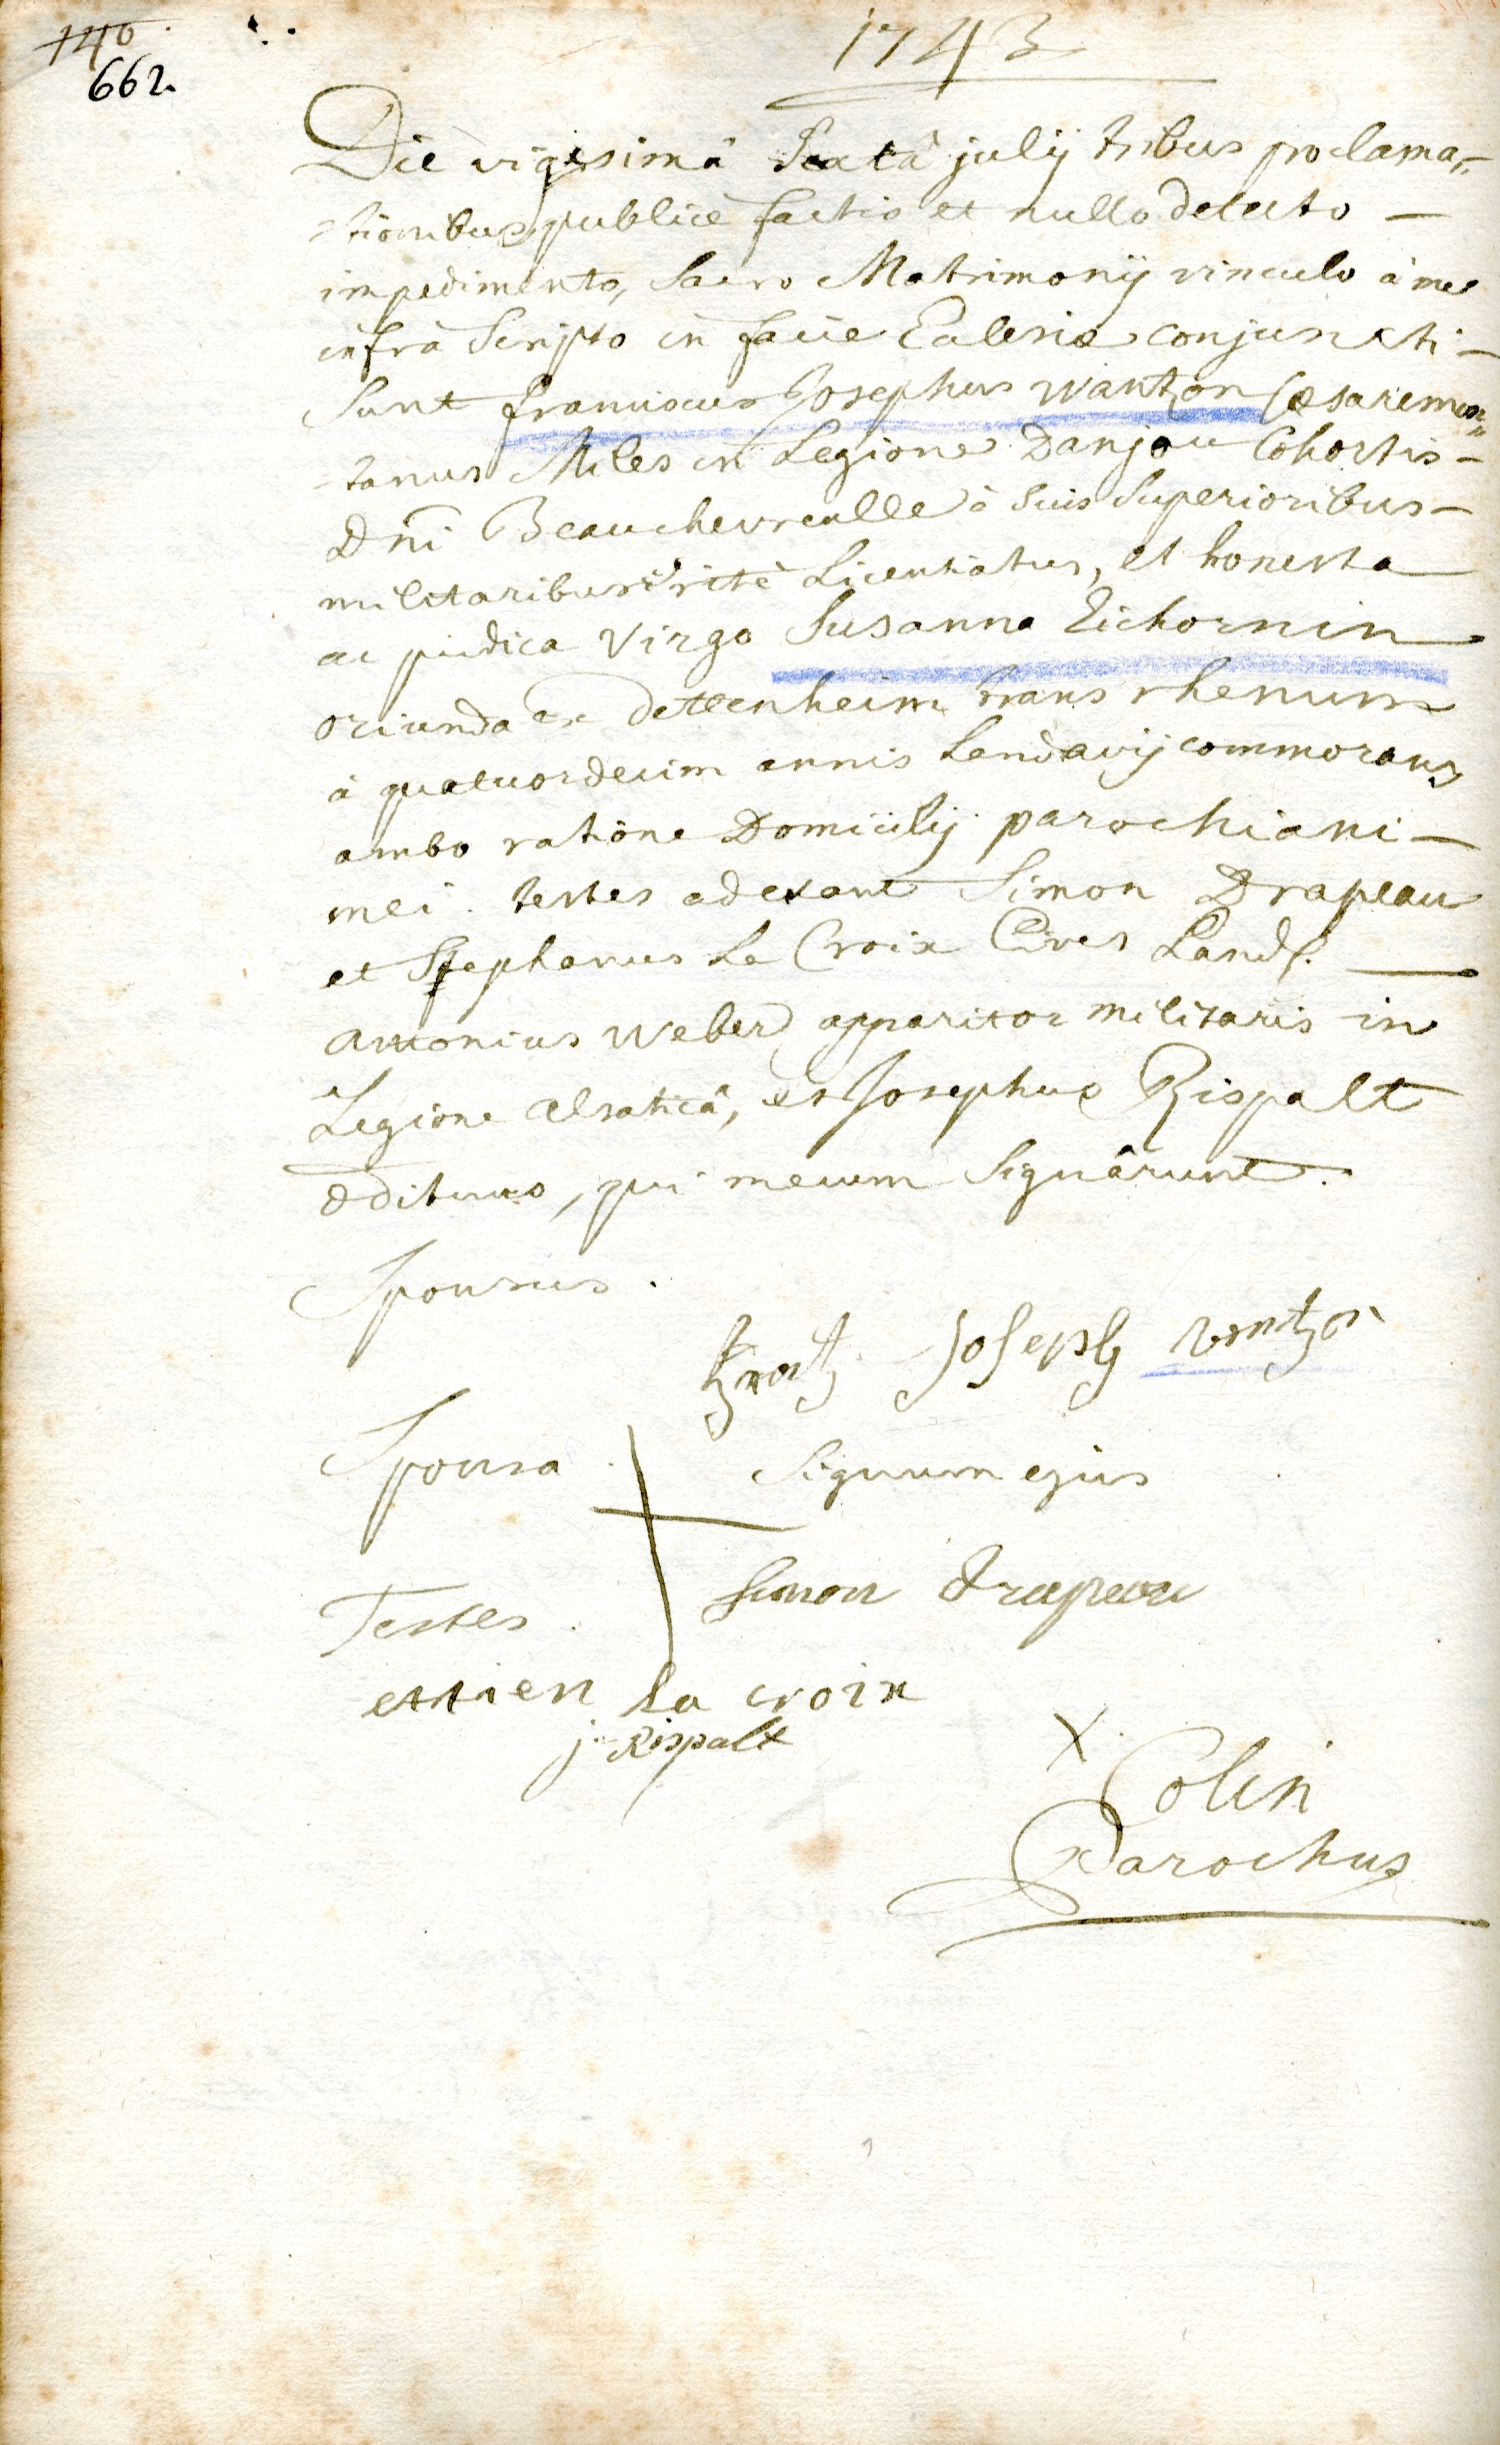 140
662.
1743
Die vigesimâ Sextâ julij tribus proclama=
tionibus publicè factis et nullo delecto —
impedimento, Sacro Matrimonij vinculo à me
infrà Scripto in facie Eclesiæ conjuncti —
Sunt franciscus Josephus Wantzon Cæsaremon=
tanus Miles in Legione Danjou Cohortis —
Dni Beaucheureulle à Suis Superioribus —
militaribus ritè Licentiatus, et honesta
ac pudica Virgo Susanna Eichornin
oriunda ex Dettenheim trans rhenum
à quatuordecim annis Landavij commorans
ambo ratione Domicilij parochiani —
mei. testes aderant Simon Drapeau
et Stephanus La Croix Cives Land. —
Antonius Weber apparitor militaris in
Legione alsaticâ, et Josephus Rispalt
ædituus, qui mecum Signârunt.
Sponsus.
frantz Joseph wantzon
Sponsa. Signum ejus
Testes. Simon drapeau
ettien la croix
j Rispalt
X Colin
Parochus